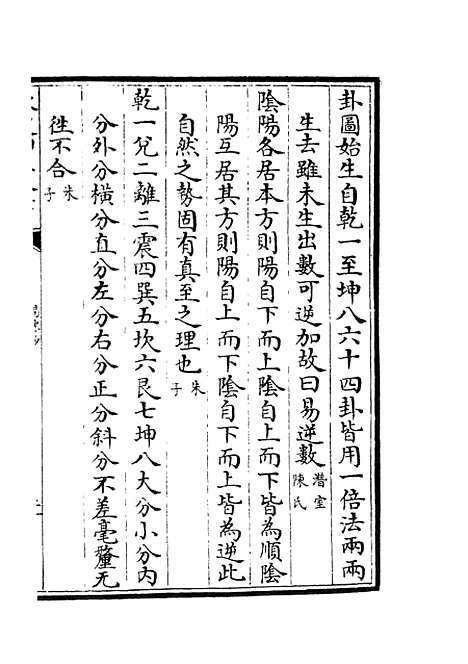 卦圖始生自乾一至坤八六十四卦皆用一倍法兩兩
生去雖未生出數可逆加故曰易逆數潛室陳氏
陰陽各居本方則陽自下而上陰自上而下皆為順陰
陽互居其方則陽自上而下陰自下而上皆為逆此
自然之勢固有真至之理也朱子
乾一兌二離三震四巽五坎六艮七坤八大分小分内
分外分橫分直分左分右分正分斜分不差毫釐无
徃不合朱子